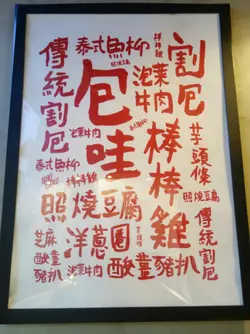 傳統割包
泰式魚柳
照燒豆腐
棒棒雞
泡菜牛肉
割包
包哇
泡菜牛肉
棒棒雞
芋頭條
泰式魚柳
棒棒雞
照燒豆腐
照燒豆腐
傳統割包
芝麻
洋蔥圈
泡菜牛肉
酸薑豬扒
酸薑豬扒